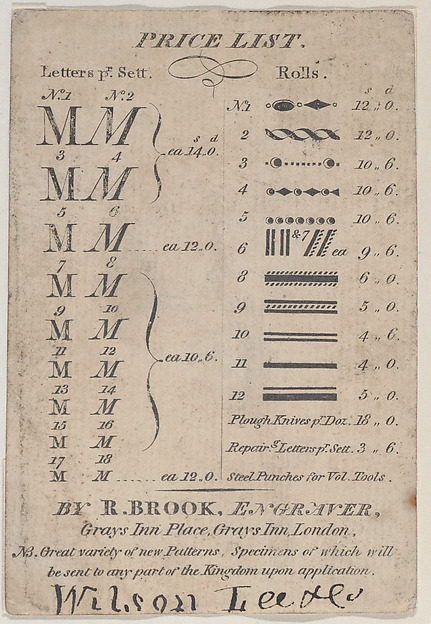 PRICE LIST.
Letters pr. Sett.
No. 1 No. 2
M M
3 4
M M
s d
ea 14„0.
5 6
M M ..... ea 12„0.
7 8
M M
9 10
M M
11 12
M M
ea 10„6.
13 14
M M
15 16
M M
17 18
M M ..... ea 12„0.
Rolls.
s d
No. 1 12„0.
2 12„0.
3 10„6.
4 10„6.
5 10„6.
6 &7 ea 9„6.
8 6„0.
9 5„0.
10 4„6.
11 4„0.
12 5„0.
Plough Knives pr. Doz. 18„0.
Repairg. Letters pr. Sett. 3„6.
Steel Punches for Vol. Tools.
BY R. BROOK, ENGRAVER,
Grays Inn Place, Grays Inn, London.
NB. Great variety of new Patterns, Specimens of which will
be sent to any part of the Kingdom upon application.
Wilson